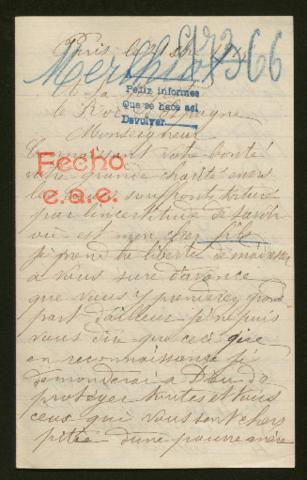 Paris le
A Sa
Pedir informes
Que se hace asi
Devolver
le Roi d'Espagne
Monseigneur
Connaissant votre bonté
votre grande charité envers
Fecho
e.a.e.
par l'incertitude de savoir
où est mon cher fils
je prend la liberté de m'adresser
à vous sure d'avance
que vous y prenerez grande
part d'ailleur je ne puis
vous dire que ceci que
en reconnaissance je
demanderai a Dieu de
protéger toutes et tous
ceux qui vous sont chers
pitié d'une pauvre mère